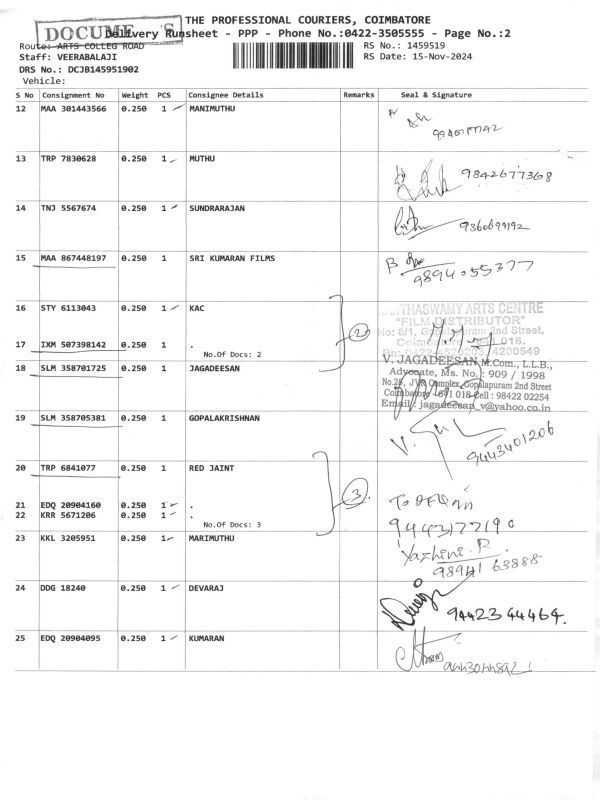 THE PROFESSIONAL COURIERS, COIMBATORE
DOCUME S
Delivery Runsheet - PPP - Phone No.:0422-3505555 - Page No.:2
Route: ARTS COLLEG ROAD RS No.: 1459519
Staff: VEERABALAJI RS Date: 15-Nov-2024
DRS No.: DCJB145951902
Vehicle:
S No Consignment No Weight PCS Consignee Details Remarks Seal & Signature
12 MAA 301443566 0.250 1 MANIMUTHU
13 TRP 7830628 0.250 1 MUTHU 9842677368
14 TNJ 5567674 0.250 1 SUNDRARAJAN 9360699192
15 MAA 867448197 0.250 1 SRI KUMARAN FILMS 9894055377
16 STY 6113043 0.250 1 KAC
2
ARTS CENTRE
"FILM DISTRIBUTOR"
No: 8/1, 2nd Street,
17 IXM 507398142 0.250 1 .
No.Of Docs: 2
18 SLM 358701725 0.250 1 JAGADEESAN
V. JAGADEESAN M.Com., L.L.B.,
Advocate, Ms. No.: 909 / 1998
No.28, JVR Complex, Gopalapuram 2nd Street
Coimbatore - 641 018 Cell : 98422 02254
Email: jagadeesan_v@yahoo.co.in
19 SLM 358705381 0.250 1 GOPALAKRISHNAN 9443401206
20 TRP 6841077 0.250 1 RED JAINT
3
21 EDQ 20904160 0.250 1 .
22 KRR 5671206 0.250 1 .
No.Of Docs: 3
9443177190
23 KKL 3205951 0.250 1 MARIMUTHU Yazhini. R
98941 63888
24 DDG 18240 0.250 1 DEVARAJ 9442344464.
25 EDQ 20904095 0.250 1 KUMARAN